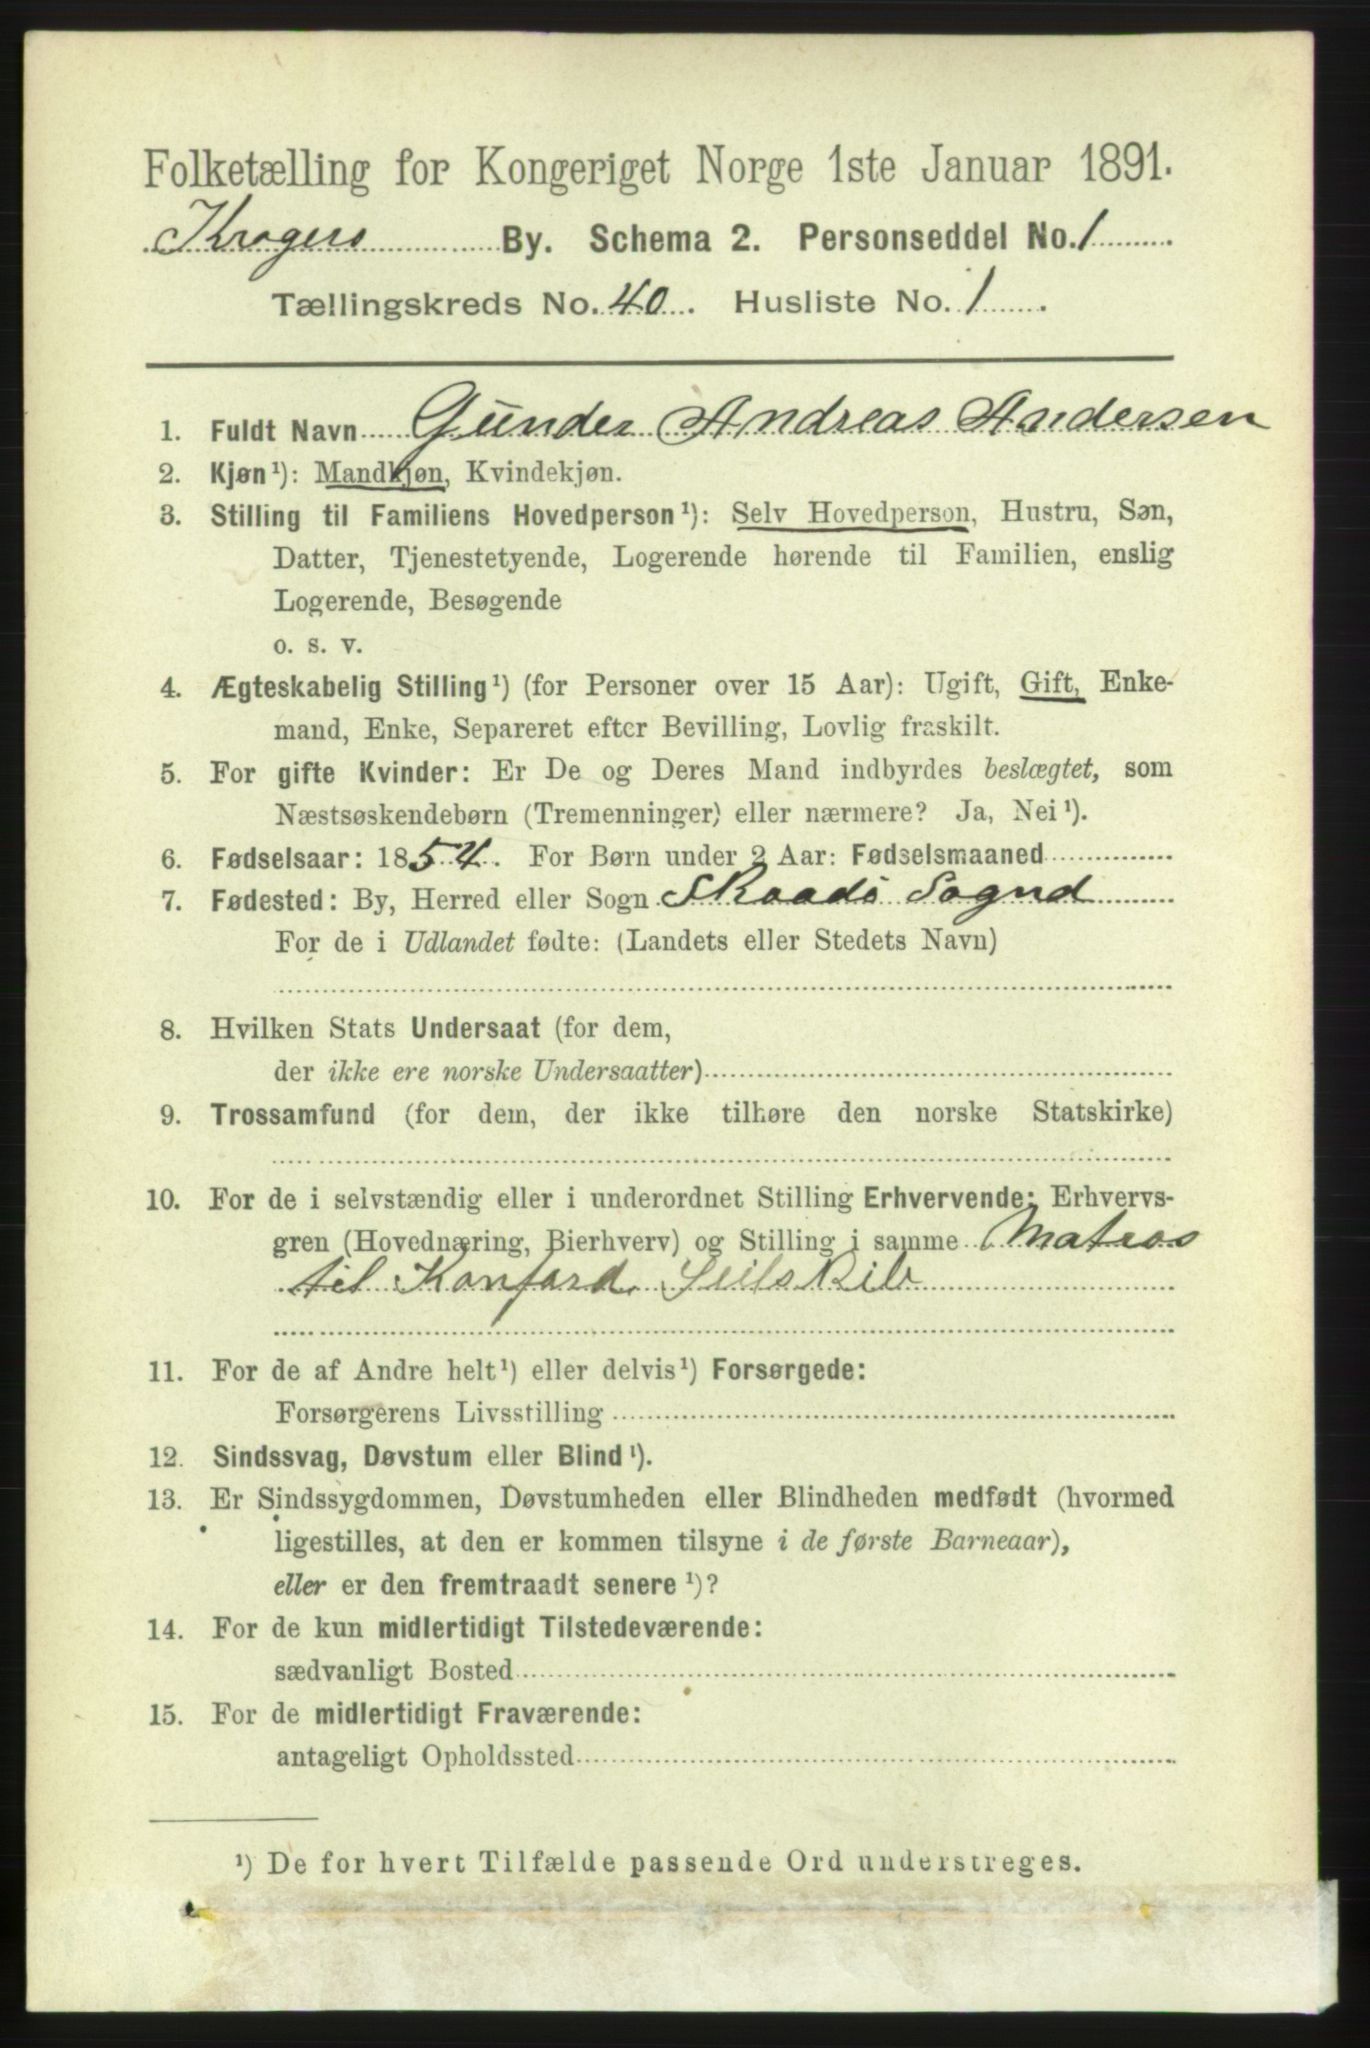 Folketælling for Kongeriget Norge 1ste Januar 1891.
Kragerø By. Schema 2. Personseddel No. 1
Tællingskreds No. 40. Husliste No. 1.
1. Fuldt Navn Gunder Andreas Andersen
2. Kjøn¹): Mandkjøn, Kvindekjøn.
3. Stilling til Familiens Hovedperson¹): Selv Hovedperson, Hustru, Søn,
Datter, Tjenestetyende, Logerende hørende til Familien, enslig
Logerende, Besøgende
o. s. v.
4. Ægteskabelig Stilling¹) (for Personer over 15 Aar): Ugift, Gift, Enke-
mand, Enke, Separeret efter Bevilling, Lovlig fraskilt.
5. For gifte Kvinder: Er De og Deres Mand indbyrdes beslægtet, som
Næstsøskendebørn (Tremenninger) eller nærmere? Ja, Nei¹).
6. Fødselsaar: 1854. For Børn under 2 Aar: Fødselsmaaned
7. Fødested: By, Herred eller Sogn Skaadö Sognd
For de i Udlandet fødte: (Landets eller Stedets Navn)
8. Hvilken Stats Undersaat (for dem,
der ikke ere norske Undersaatter)
9. Trossamfund (for dem, der ikke tilhøre den norske Statskirke)
10. For de i selvstændig eller i underordnet Stilling Erhvervende: Erhvervs-
gren (Hovednæring, Bierhverv) og Stilling i samme Matros
til Konfard. Seilskib
11. For de af Andre helt¹) eller delvis¹) Forsørgede:
Forsørgerens Livsstilling
12. Sindssvag, Døvstum eller Blind¹).
13. Er Sindssygdommen, Døvstumheden eller Blindheden medfødt (hvormed
ligestilles, at den er kommen tilsyne i de første Barneaar),
eller er den fremtraadt senere¹)?
14. For de kun midlertidigt Tilstedeværende:
sædvanligt Bosted
15. For de midlertidigt Fraværende:
antageligt Opholdssted
¹) De for hvert Tilfælde passende Ord understreges.